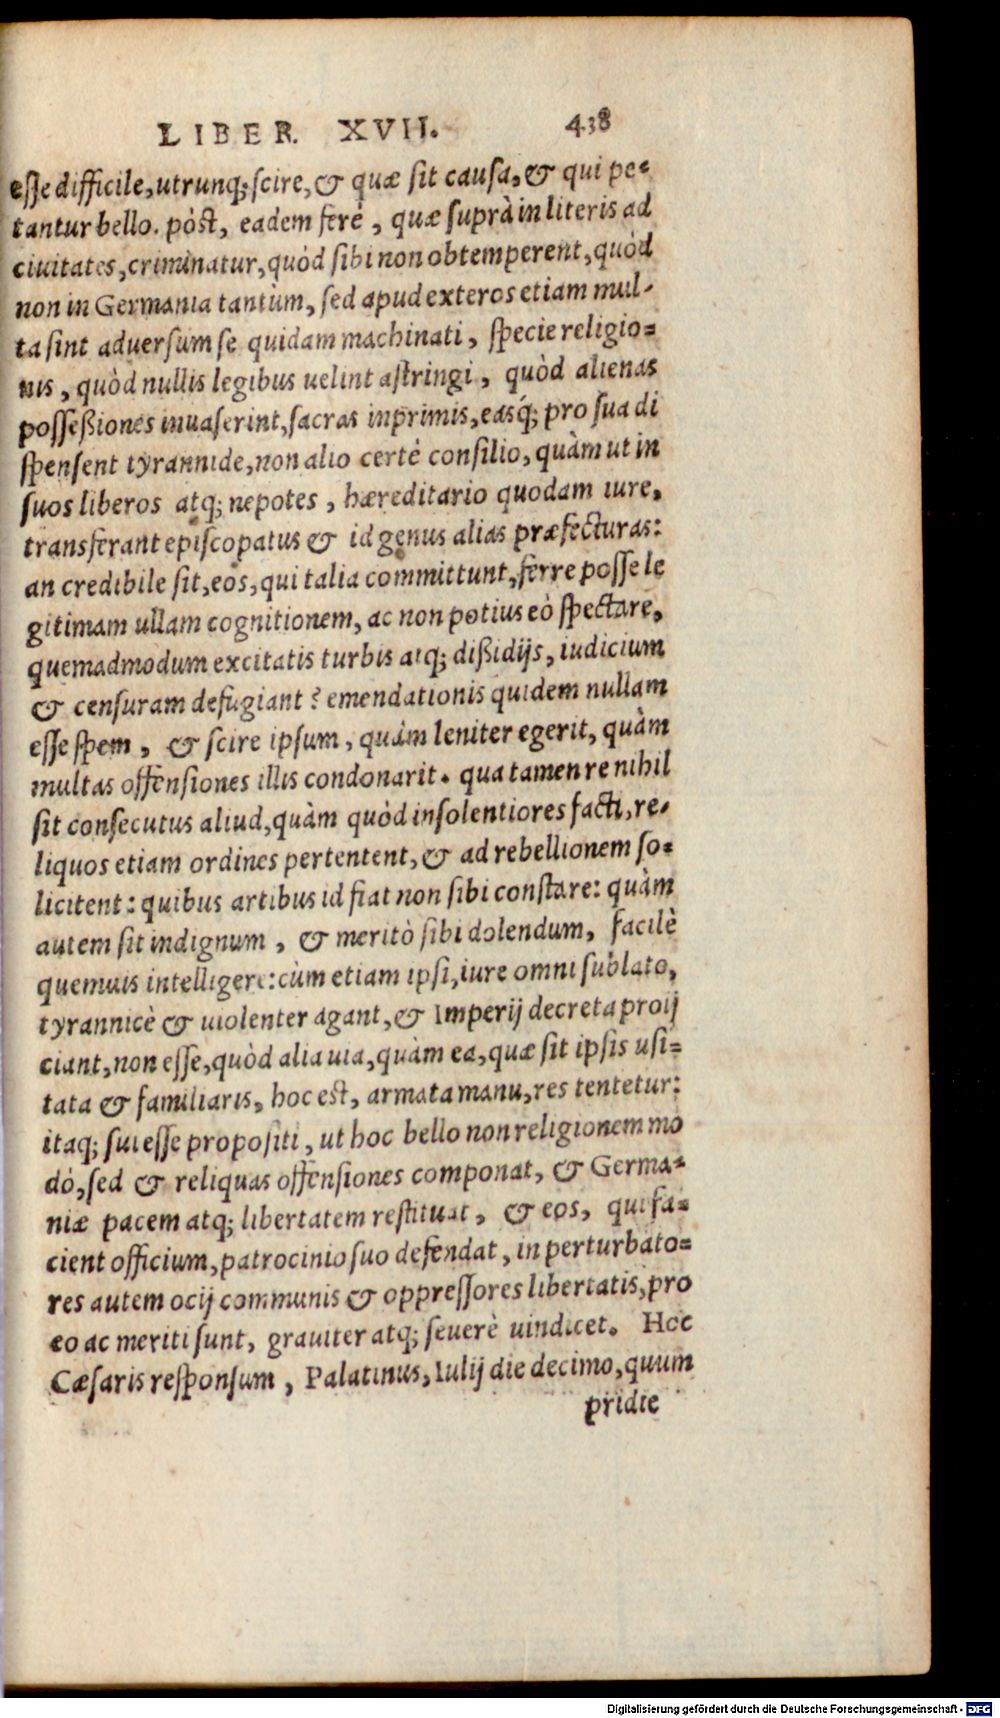 LIBER XVII. 438
esse difficile, utrunq; scire, & quæ sit causa, & qui pe-
tantur bello. pòst, eadem ferè, quæ suprà in literis ad
ciuitates, criminatur, quòd sibi non obtemperent, quòd
non in Germania tantùm, sed apud exteros etiam mul-
ta sint aduersum se quidam machinati, specie religio-
nis, quòd nullis legibus uelint astringi, quòd alienas
possessiones inuaserint, sacras inprimis, easq́; pro sua di
spensent tyrannide, non alio certè consilio, quàm ut in
suos liberos atq; nepotes, hæreditario quodam iure,
transferant episcopatus & id genus alias præfecturas:
an credibile sit, eos, qui talia committunt, ferre posse le
gitimam ullam cognitionem, ac non potius eò spectare,
quemadmodum excitatis turbis atq; dißidijs, iudicium
& censuram defugiant? emendationis quidem nullam
esse spem, & scire ipsum, quàm leniter egerit, quàm
multas offensiones illis condonarit. qua tamen re nihil
sit consecutus aliud, quàm quòd insolentiores facti, re-
liquos etiam ordines pertentent, & ad rebellionem so-
licitent: quibus artibus id fiat non sibi constare: quàm
autem sit indignum, & meritò sibi dolendum, facilè
quemuis intelligere: cùm etiam ipsi, iure omni sublato,
tyrannicè & uiolenter agant, & Imperij decreta proij
ciant, non esse, quòd alia uia, quàm ea, quæ sit ipsis usi-
tata & familiaris, hoc est, armata manu, res tentetur:
itaq; sui esse propositi, ut hoc bello non religionem mo
dò, sed & reliquas offensiones componat, & Germa-
niæ pacem atq; libertatem restituat, & eos, qui fa-
cient officium, patrocinio suo defendat, in perturbato-
res autem ocij communis & oppressores libertatis, pro
eo ac meriti sunt, grauiter atq; seuerè uindicet. Hoc
Cæsaris responsum, Palatinus, Iulij die decimo, quum
pridie
Digitalisierung gefördert durch die Deutsche Forschungsgemeinschaft - DFG